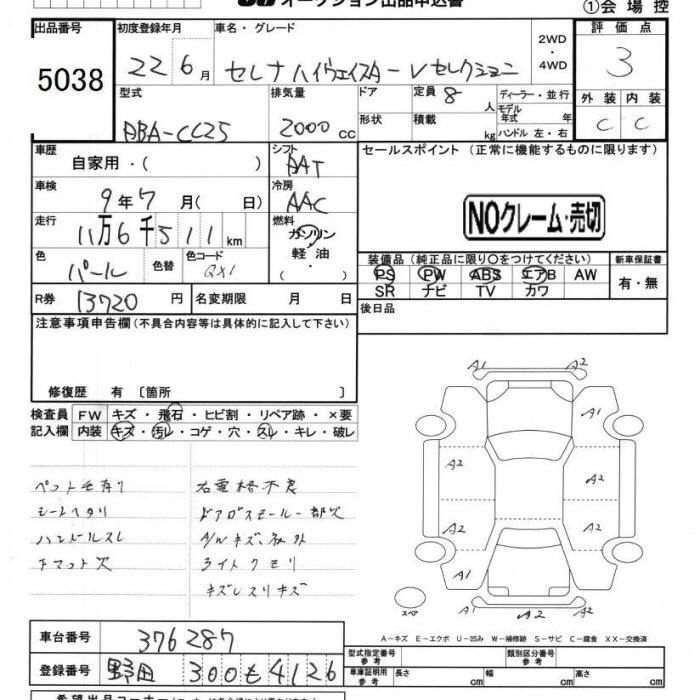 オークション出品申込書
①会場控
出品番号 初度登録年月 車名・グレード 2WD・4WD 評価点
5038 22 6月 セレナ ハイウェイスターVセレクション 3
型式 排気量 ドア 定員 8人 ディーラー・並行 外装 内装
DBA-CC25 2000cc 形状 積載 kg モデル年式 年 ハンドル 左・右 C C
車歴 自家用・( ) シフト AAT セールスポイント (正常に機能するものに限ります)
車検 9年7月( 日) 冷房 AAC
NOクレーム・売切
走行 11万6千511km 燃料 ガソリン・軽油・( )
色 パール 色替 色コード QX1
装備品 (純正品に限り○をつけてください) 新車保証書
PS PW ABS エアB AW 有・無
SR ナビ TV カワ
R券 13720円 名変期限 月 日
後日品
注意事項申告欄 (不具合内容等は具体的に記入して下さい)
修復歴 有 〔箇所 〕
検査員 FW キズ・飛石・ヒビ割・リペア跡・×要
記入欄 内装 キズ・汚レ・コゲ・穴・スレ・キレ・破レ
ペット毛有り 右電格不良
シートヘタリ ドアガラスモール一部欠
ハンドルスレ A/Wキズ社外
Fマット欠 ライトクモリ
キズレスリキズ
A1 A2
A1
A2 A2
A2 A2
A1 A1
スペ A1 A2 A2
A-キズ E-エクボ U-凹み W-補修跡 S-サビ C-腐食 XX-交換済
車台番号 376287
登録番号 野田 300 も 4126
型式指定番号 参考 類別区分番号 参考
車庫証明用 参考 長さ cm 幅 cm 高さ cm